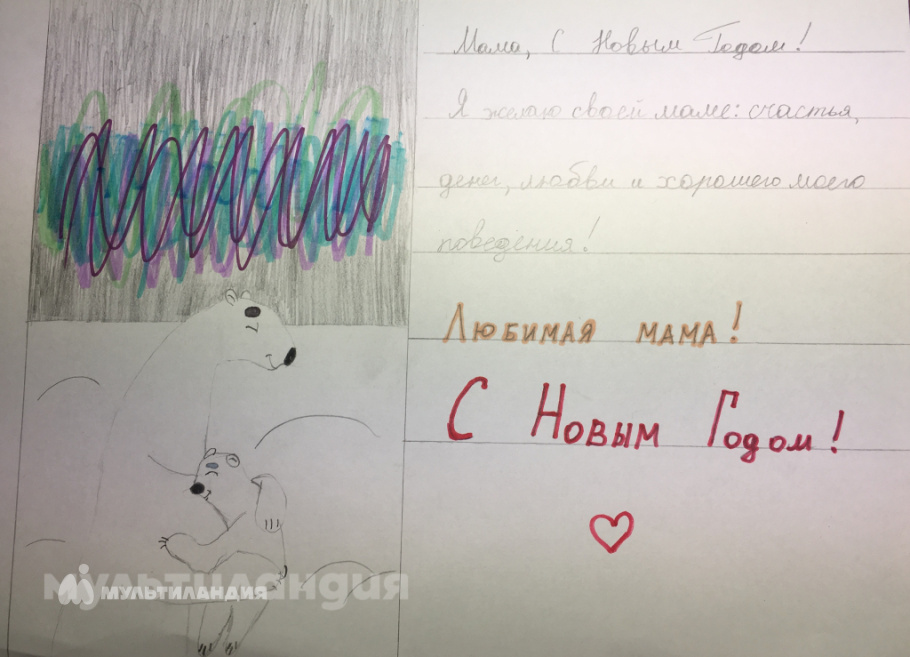 Мама, С Новым Годом!
Я желаю своей маме: счастья,
денег, любви и хорошего моего
поведения!
Любимая мама!
С Новым Годом!
мультиландия
МУЛЬТИЛАНДИЯ